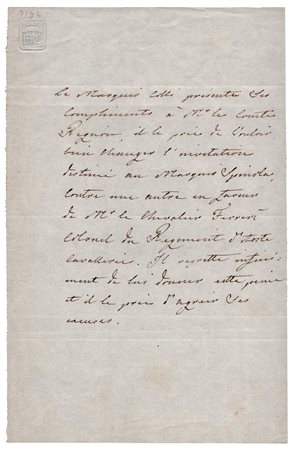 3192
Le Marquis Colli présente ses
compliments à Mr le Comte
Regnon, il le prie de vouloir
bien changer l'invitation
destiné au Marquis Spinola,
contre une autre en faveur
de Mr le Chevalier Ferrere
Colonel du Regiment d'Aoste
Cavallerie. Il regrette infini:
ment de lui donner cette peine
et il le prie d'agréer ses
excuses.